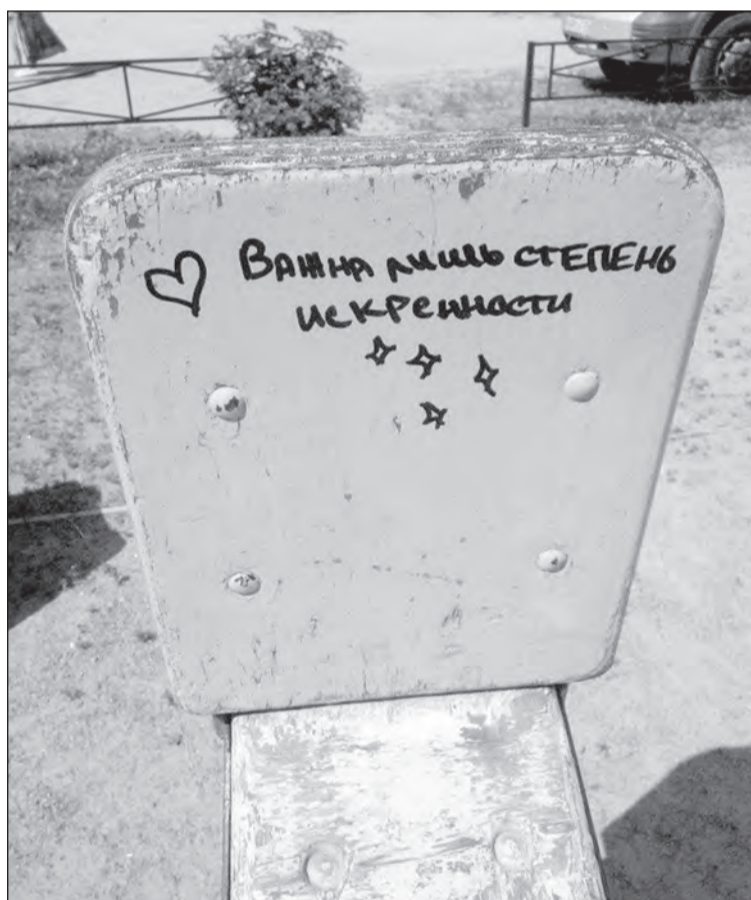 Важна лишь степень
искренности